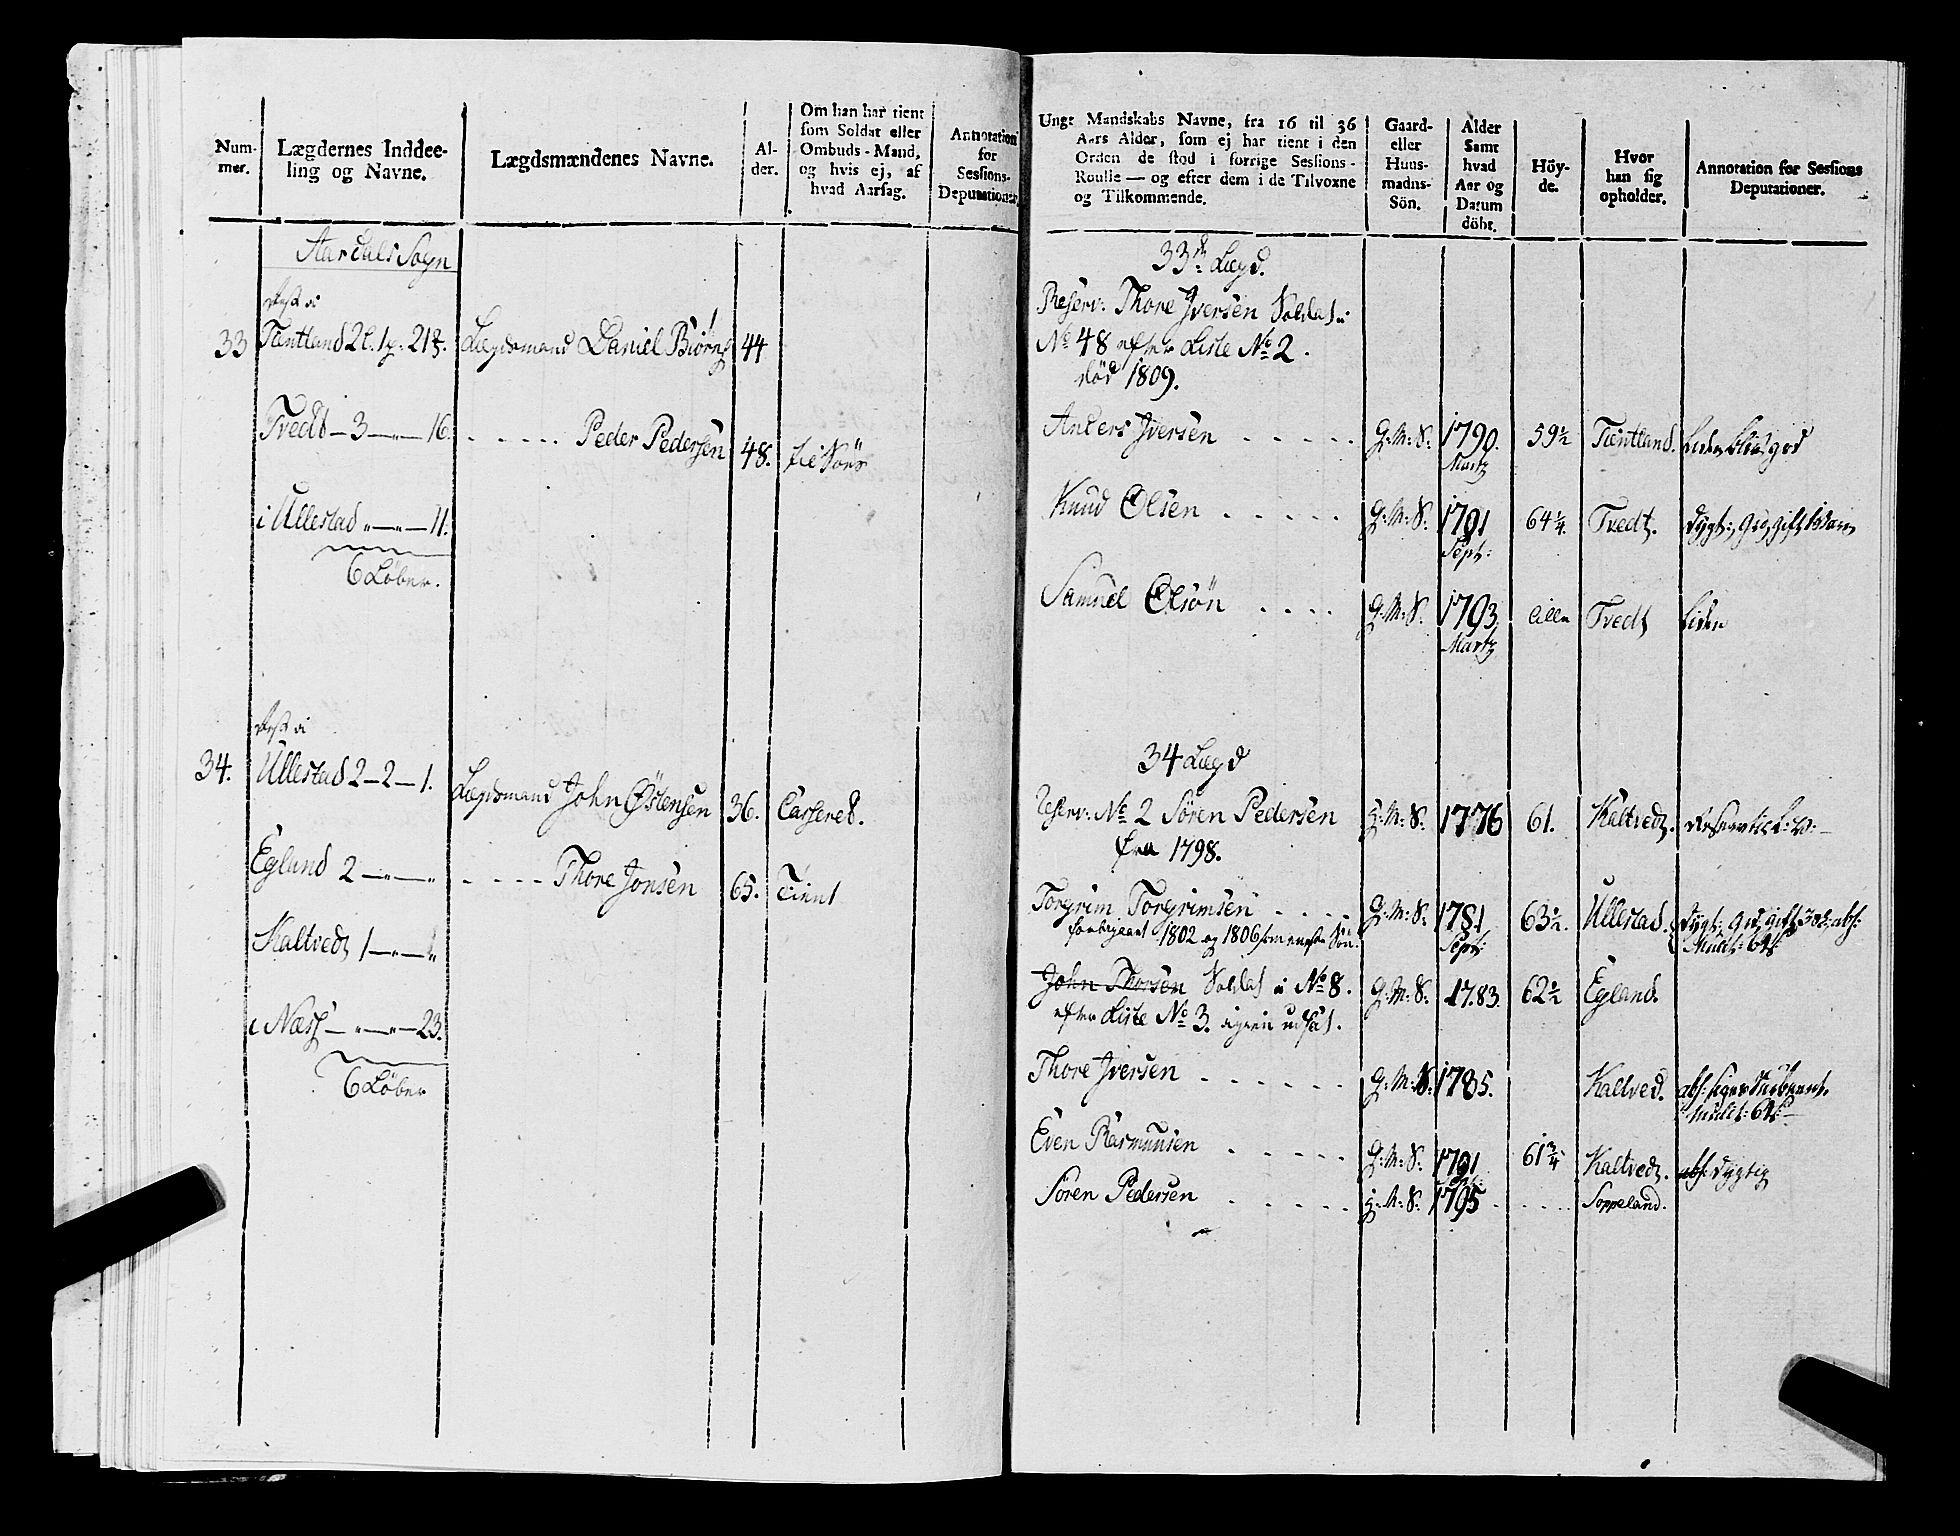 Num-
mer.
Lægdernes Inddee-
ling og Navne.
Lægdsmændenes Navne.
Al-
der.
Om han har tient
som Soldat eller
Ombuds-Mand,
og hvis ej, af
hvad Aarsag.
Annotation
for
Sessions-
Deputationer.
Aardals Sogn
33
Tæntland 2
Lægdsmand Daniel Biørns
44
Tvedt — 3 — „ — 16.
Peder Pedersen
48.
i Ullestad „ — „ — 11.
6 Løber.
34.
Ullestad 2 — 2 — 1.
Lægdsmand John Østensen
36.
Casseret.
Egland 2 — „ — „
Thore Jonsen
65.
Tient
Kaltvedt 1 — „ — „
i Næss — „ — „ — 23.
6 Løber
Unge Mandskabs Navne, fra 16 til 36
Aars Alder, som ej har tient i den
Orden de stod i forrige Sessions-
Roulle — og efter dem i de Tilvoxne
og Tilkommende.
Gaard-
eller
Huus-
mands-
Sön.
Alder
Samt
hvad
Aar og
Datum
döbt.
Höy-
de.
Hvor
han sig
opholder.
Annotation for Sessions
Deputationer.
33d Lægd.
Reserv: Thore Iversen Soldat i
No 48 efter Liste No 2.
død 1809.
Anders Iversen
G: M: S:
1790.
Martz
59½
Tæntland.
liden
god
Knud Olsen
G: M: S:
1791
Sept:
64¼.
Tvedt.
dygt:
Samuel Olsön
G: M: S:
1793
Martz
lille
Tvedt
liden
34 Lægd
Reserv: No 2 Sören Pedersen
fra 1798.
H: M: S:
1776
61.
Kaltvedt.
Torgrim Torgrimsen
forbigaaet 1802 og 1806 som eneste Sön.
G: M: S:
1781
Sept:
63½.
Ullestad.
dygt:
John Thorsen Soldat i No 8.
efter Liste No 3. igien udsat.
G: M: S:
1783.
62½
Egland.
Thore Iversen
G: M: S:
1785.
Kaltved.
abs:
Even Rasmusen
G: M: S:
1791
61¾
Kaltvedt.
abs: dygtig
Sören Pedersen
H: M: S:
1795
Soppeland.